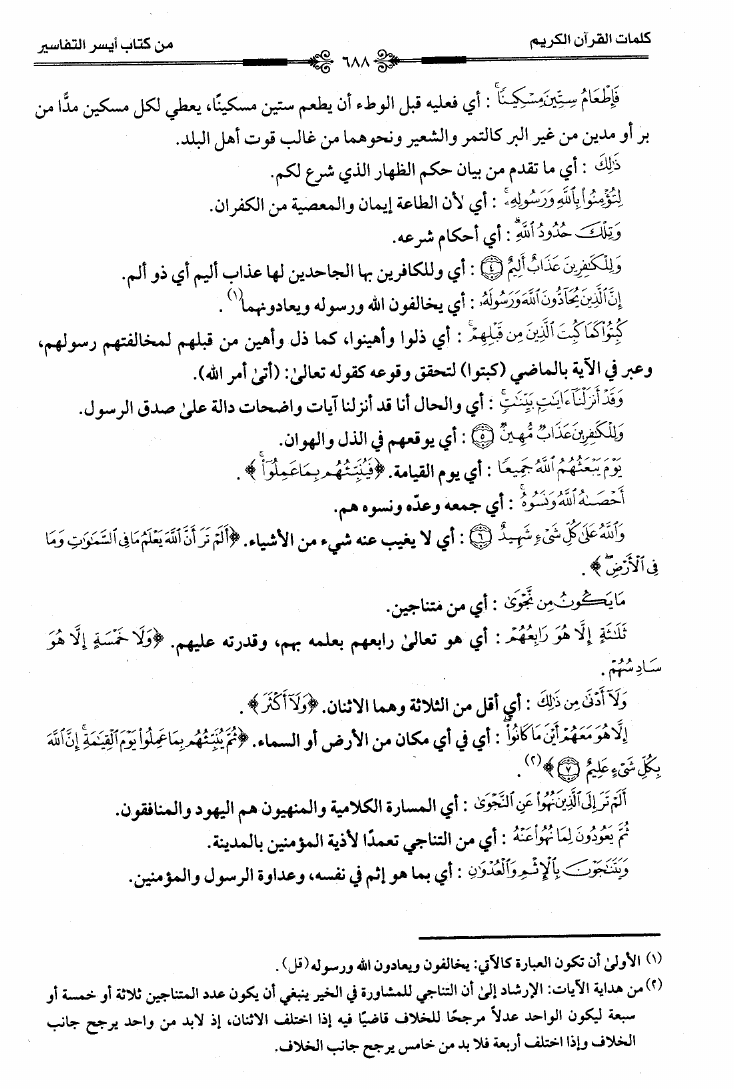 كلمات القرآن الكريم
٦٨٨
من كتاب أيسر التفاسير
فَإِطْعَامُ سِتِّينَ مِسْكِينًا : أي فعليه قبل الوطء أن يطعم ستين مسكينًا، يعطي لكل مسكين مدًّا من
بر أو مدين من غير البر كالتمر والشعير ونحوهما من غالب قوت أهل البلد.
ذَٰلِكَ : أي ما تقدم من بيان حكم الظهار الذي شرع لكم.
لِتُؤْمِنُوا۟ بِٱللَّهِ وَرَسُولِهِۦ : أي لأن الطاعة إيمان والمعصية من الكفران.
وَتِلْكَ حُدُودُ ٱللَّهِ : أي أحكام شرعه.
وَلِلْكَٰفِرِينَ عَذَابٌ أَلِيمٌ ﴿٤﴾ : أي وللكافرين بها الجاحدين لها عذاب أليم أي ذو ألم.
إِنَّ ٱلَّذِينَ يُحَآدُّونَ ٱللَّهَ وَرَسُولَهُۥ : أي يخالفون الله ورسوله ويعادونهما(١).
كُبِتُوا۟ كَمَا كُبِتَ ٱلَّذِينَ مِن قَبْلِهِمْ : أي ذلوا وأهينوا، كما ذل وأهين من قبلهم لمخالفتهم رسولهم،
وعبر في الآية بالماضي (كبتوا) لتحقق وقوعه كقوله تعالىٰ: (أتىٰ أمر الله).
وَقَدْ أَنزَلْنَآ ءَايَٰتٍۭ بَيِّنَٰتٍ : أي والحال أنا قد أنزلنا آيات واضحات دالة علىٰ صدق الرسول.
وَلِلْكَٰفِرِينَ عَذَابٌ مُّهِينٌ ﴿٥﴾ : أي يوقعهم في الذل والهوان.
يَوْمَ يَبْعَثُهُمُ ٱللَّهُ جَمِيعًا : أي يوم القيامة. ﴿فَيُنَبِّئُهُم بِمَا عَمِلُوٓا۟﴾ .
أَحْصَىٰهُ ٱللَّهُ وَنَسُوهُ : أي جمعه وعدّه ونسوه هم.
وَٱللَّهُ عَلَىٰ كُلِّ شَىْءٍ شَهِيدٌ ﴿٦﴾ : أي لا يغيب عنه شيء من الأشياء. ﴿أَلَمْ تَرَ أَنَّ ٱللَّهَ يَعْلَمُ مَا فِى ٱلسَّمَٰوَٰتِ وَمَا
فِى ٱلْأَرْضِ﴾ .
مَا يَكُونُ مِن نَّجْوَىٰ : أي من متناجين.
ثَلَٰثَةٍ إِلَّا هُوَ رَابِعُهُمْ : أي هو تعالىٰ رابعهم بعلمه بهم، وقدرته عليهم. ﴿وَلَا خَمْسَةٍ إِلَّا هُوَ
سَادِسُهُمْ .
وَلَآ أَدْنَىٰ مِن ذَٰلِكَ : أي أقل من الثلاثة وهما الاثنان. ﴿وَلَآ أَكْثَرَ﴾ .
إِلَّا هُوَ مَعَهُمْ أَيْنَ مَا كَانُوا۟ : أي في أي مكان من الأرض أو السماء. ﴿ثُمَّ يُنَبِّئُهُم بِمَا عَمِلُوا۟ يَوْمَ ٱلْقِيَٰمَةِ إِنَّ ٱللَّهَ
بِكُلِّ شَىْءٍ عَلِيمٌ ﴿٧﴾﴾(٢).
أَلَمْ تَرَ إِلَى ٱلَّذِينَ نُهُوا۟ عَنِ ٱلنَّجْوَىٰ : أي المسارة الكلامية والمنهيون هم اليهود والمنافقون.
ثُمَّ يَعُودُونَ لِمَا نُهُوا۟ عَنْهُ : أي من التناجي تعمدًا لأذية المؤمنين بالمدينة.
وَيَتَنَٰجَوْنَ بِٱلْإِثْمِ وَٱلْعُدْوَٰنِ : أي بما هو إثم في نفسه، وعداوة الرسول والمؤمنين.
(١) الأولىٰ أن تكون العبارة كالآتي: يخالفون ويعادون الله ورسوله (قل).
(٢) من هداية الآيات: الإرشاد إلىٰ أن التناجي للمشاورة في الخير ينبغي أن يكون عدد المتناجين ثلاثة أو خمسة أو
سبعة ليكون الواحد عدلاً مرجحًا للخلاف قاضيًا فيه إذا اختلف الاثنان، إذ لابد من واحد يرجح جانب
الخلاف وإذا اختلف أربعة فلا بد من خامس يرجح جانب الخلاف.